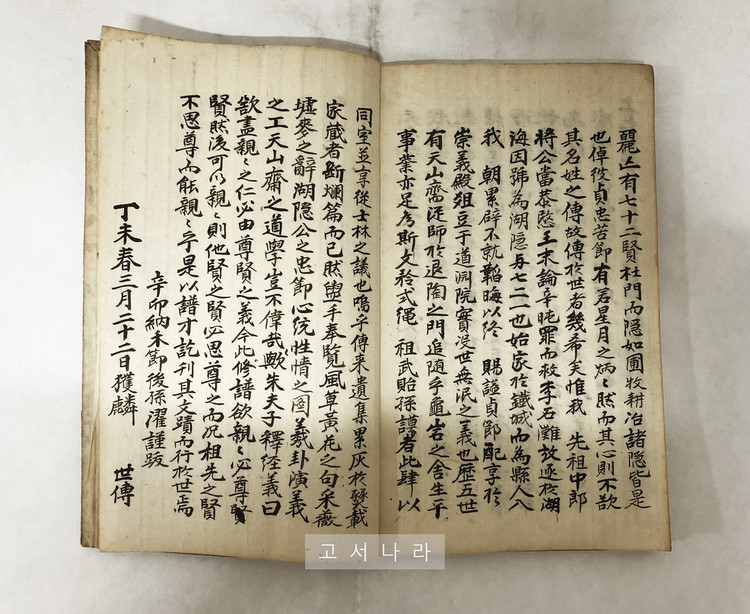 麗亡有七十二賢杜門而隱如圃牧耕冶諸隱皆是
也倬彼貞忠苦節有若星月之炳〻然而其心則不欲
其名姓之傳故傳於世者幾希矣惟我 先祖中郎
將公當恭愍王末論辛旽罪而救李石灘放逐於湖
海因號為湖隱与七二一也始家於鐵城而為縣人入
我 朝累辟不就韜晦以終 賜謚貞節配享於
崇義殿俎豆于道淵院實沒世無泯之義也歷五世
有天山齋從師於退陶之門追隨乎龜岩之舍生乎
事業亦足為斯文矜式繩 祖武貽孫謨者此肆以
同室並享從士林之議也嗚乎傳來遺集累灰於燹載
家藏者斷爛篇而已然盥手奉覽風草黃花之句采薇
墟麥之辭湖隱公之忠節心統性情之圖羲卦演義
之工天山齋之道學豈不偉哉歟朱夫子釋經義曰
欲盡親〻之仁必由尊賢之義今此修譜欲親〻必尊賢
賢然後可以親〻則他賢之賢必思尊之而况祖先之賢
不思尊而能親〻乎是以譜才訖刊其文蹟而行於世焉
辛卯納禾節後孫濯謹跋
丁未春三月二十二日獲麟 世傳
고서나라